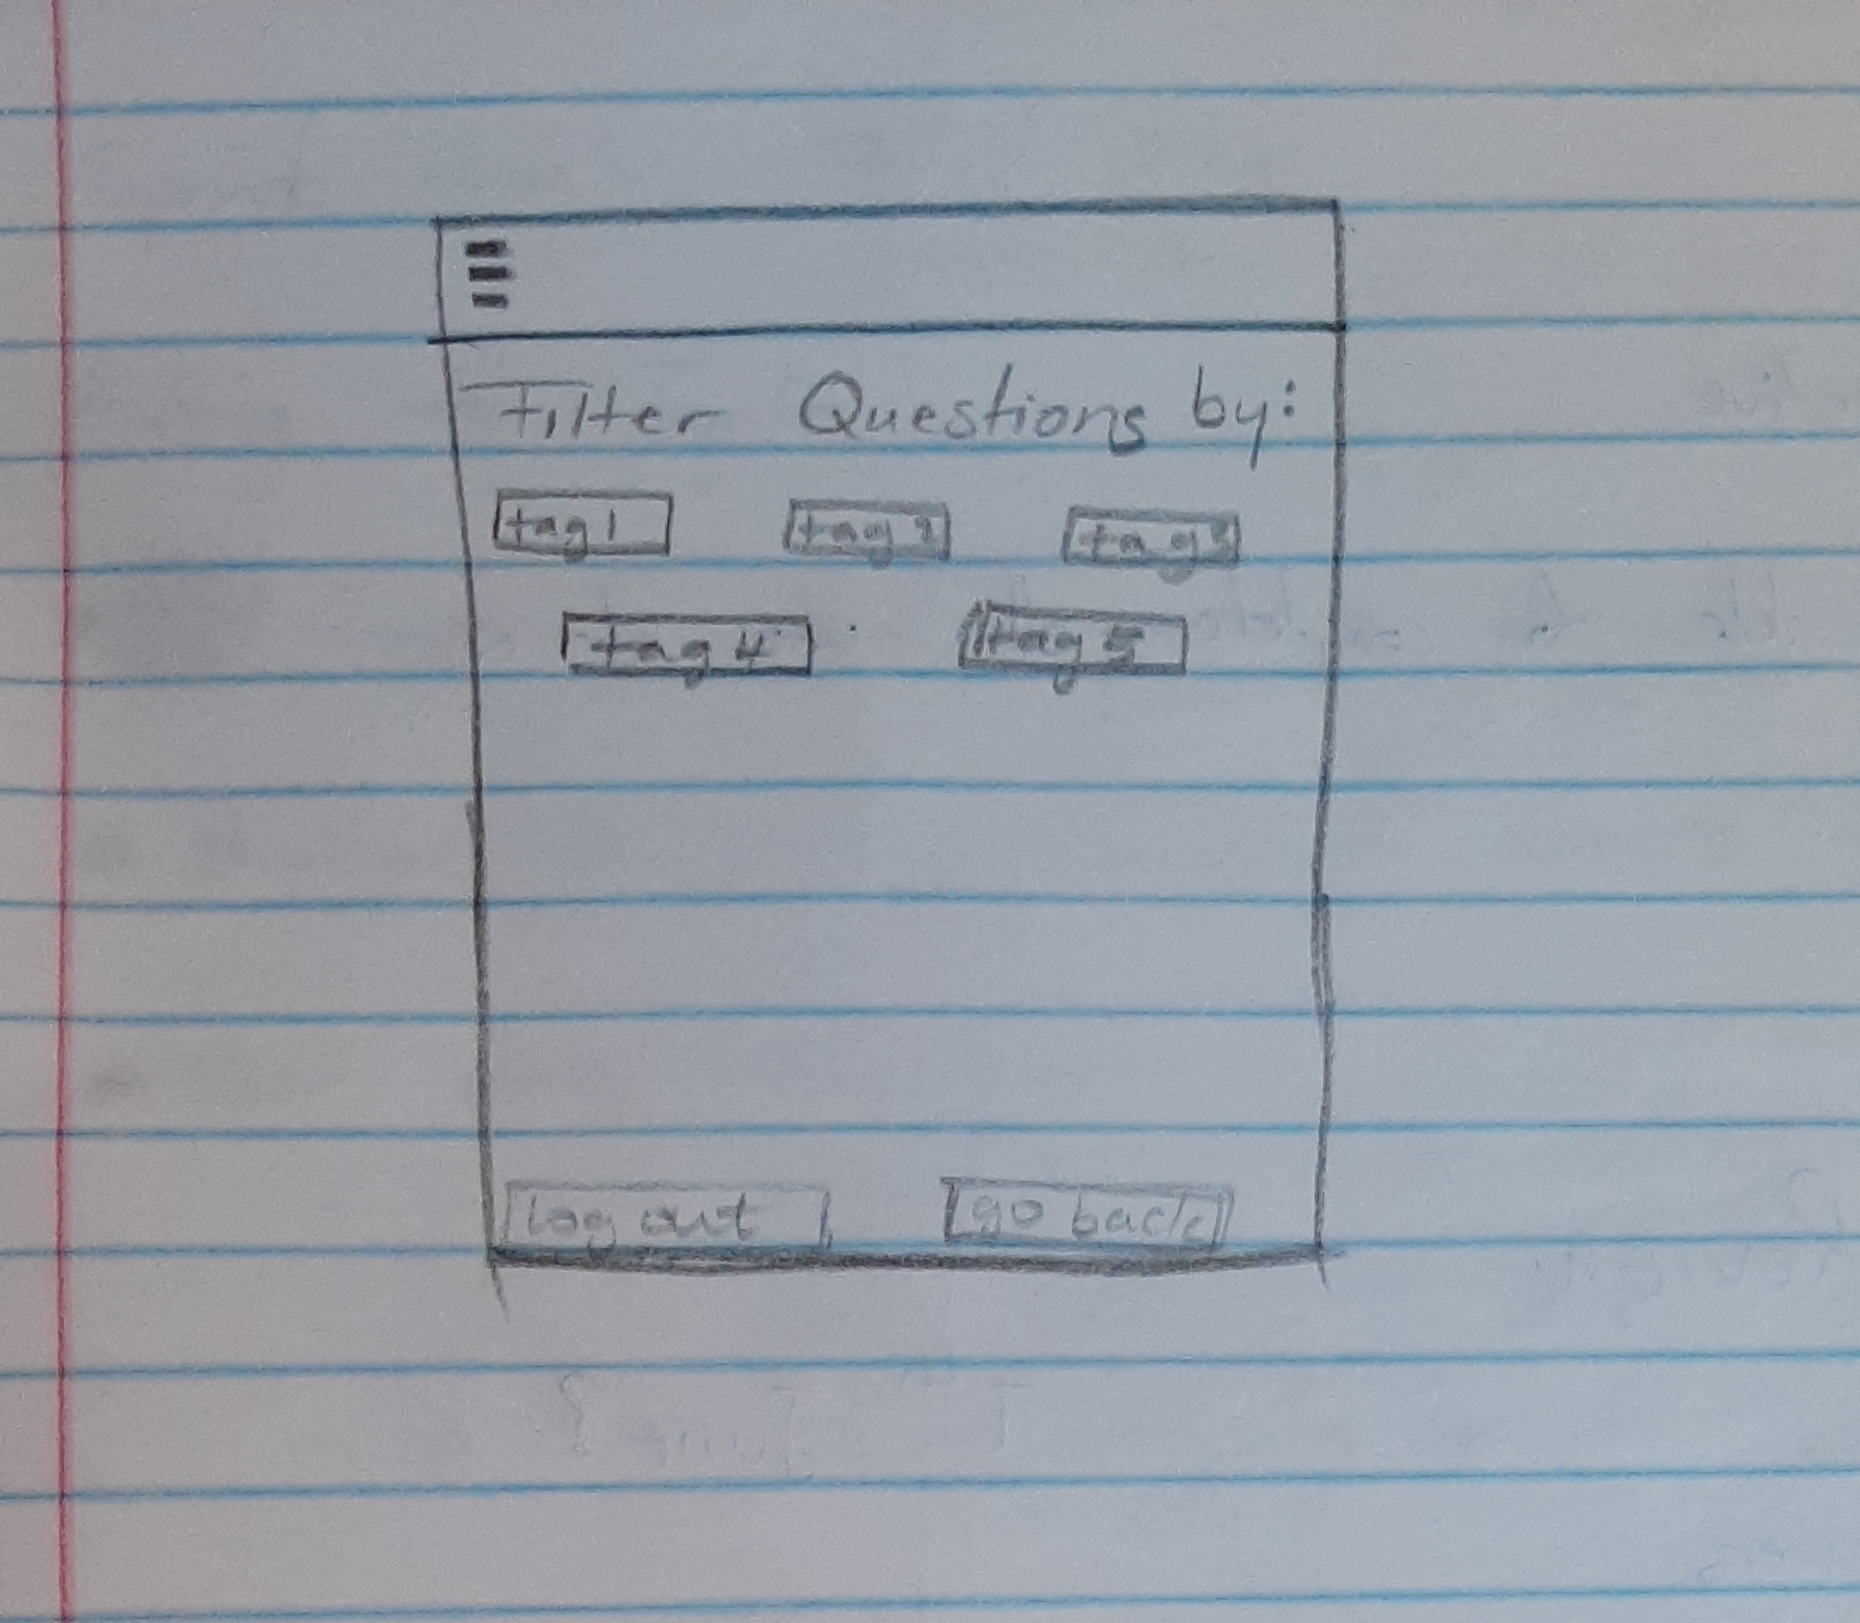 Filter Questions by:
tag 1 tag 2 tag 3
tag 4 tag 5
log out go back